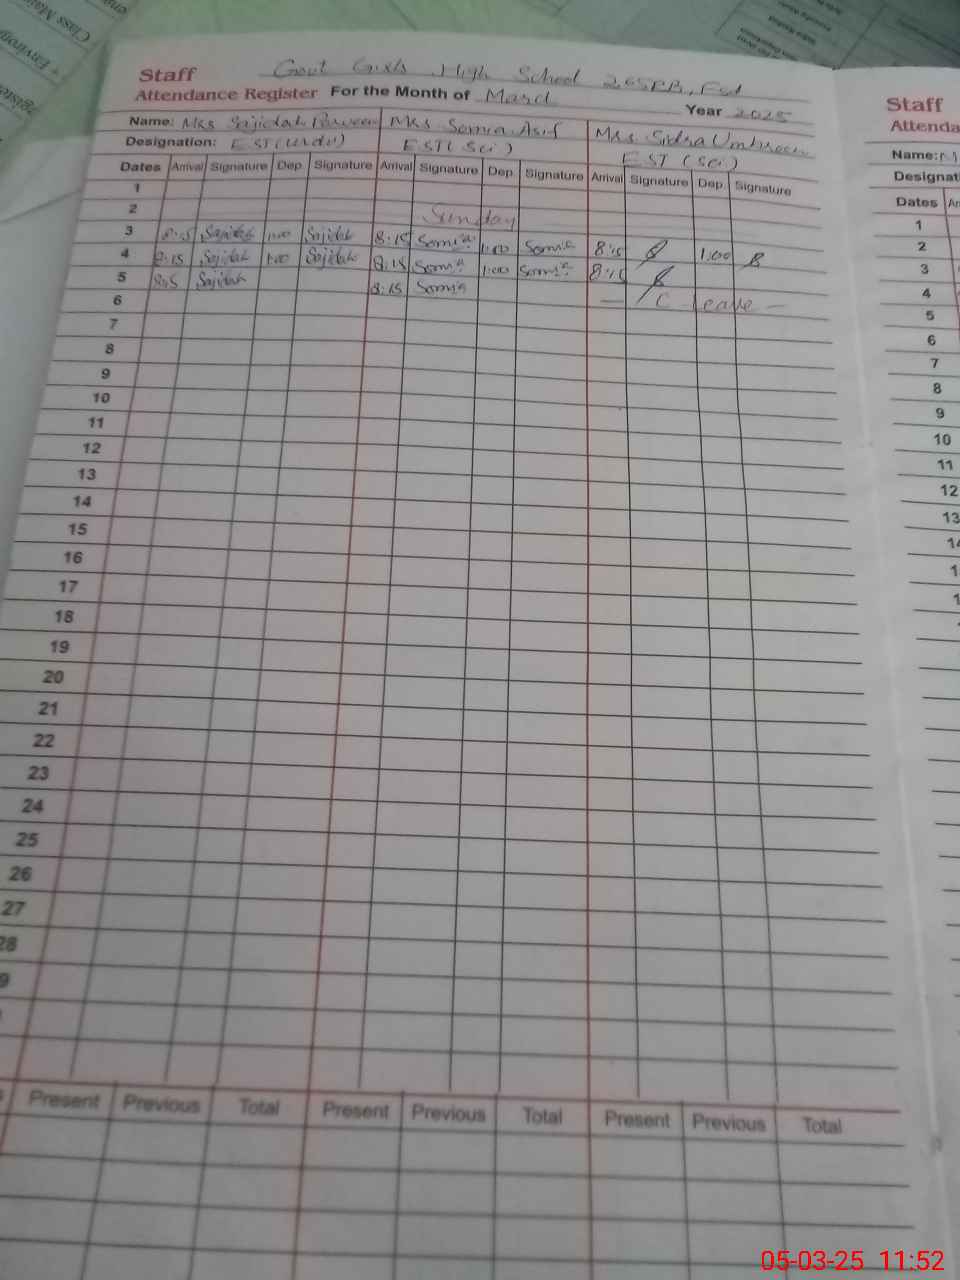 Staff Govt Girls High School 265RB, Fsd
Attendance Register For the Month of March Year 2025
Name: Mrs Sajidah Parveen Mrs. Somia Asif Mrs. Sidra Umbreen
Designation: EST(Urdu) EST(Sci) EST (Sci)
Dates Arrival Signature Dep. Signature Arrival Signature Dep. Signature Arrival Signature Dep. Signature
1
2 Sunday
3 8:15 Sajidah 1:00 Sajidah 8:15 Somia 1:00 Somia 8:15 1:00
4 8:15 Sajidah 1:00 Sajidah 8:15 Somia 1:00 Somia 8:15
5 8:15 Sajidah 8:15 Somia — C-leave —
6
7
8
9
10
11
12
13
14
15
16
17
18
19
20
21
22
23
24
25
26
27
28
9
Present Previous Total Present Previous Total Present Previous Total
Staff
Attenda
Name: M
Designat
Dates Ar
1
2
3
4
5
6
7
8
9
10
11
12
13
14
05-03-25 11:52